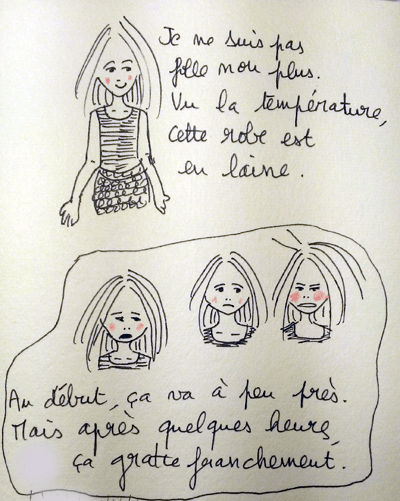 Je ne suis pas
folle non plus.
Vu la température,
cette robe est
en laine.
Au début, ça va à peu près.
Mais après quelques heures,
ça gratte franchement.